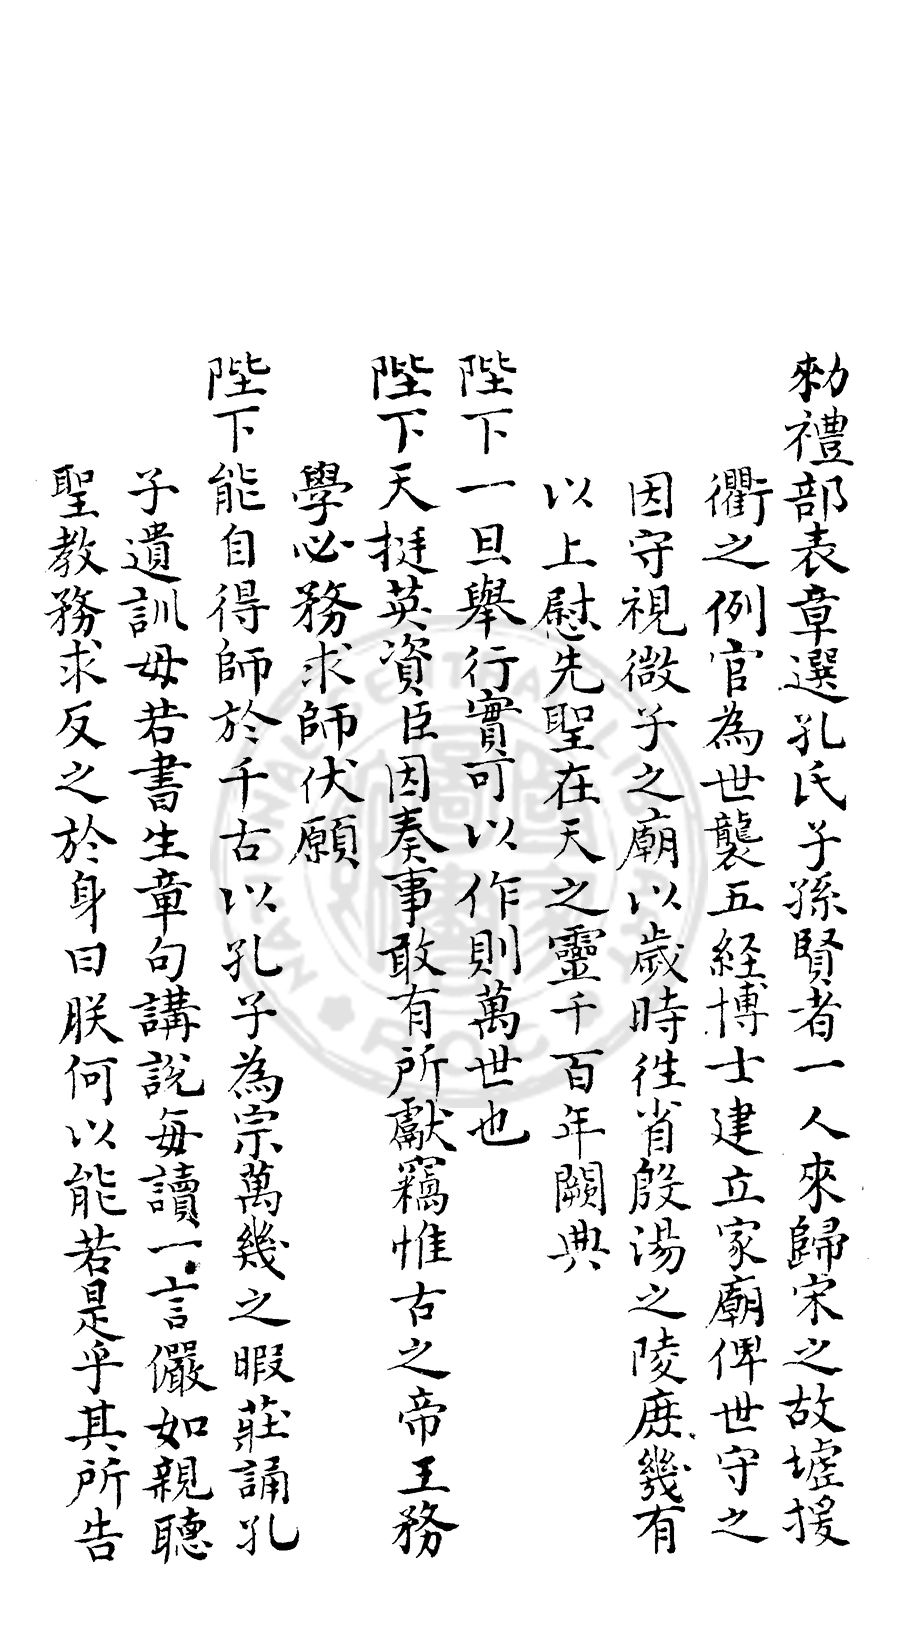 勑禮部表章選孔氏子孫賢者一人來歸宋之故墟援
衢之例官為世襲五経博士建立家廟俾世守之
因守視微子之廟以歲時徃省殷湯之陵庶幾有
以上慰先聖在天之靈千百年闕典
陛下一旦舉行實可以作則萬世也
陛下天挺英資臣因奏事敢有所獻竊惟古之帝王務
學必務求師伏願
陛下能自得師於千古以孔子為宗萬幾之暇莊誦孔
子遺訓毋若書生章句講說每讀一言儼如親聽
聖教務求反之於身曰朕何以能若是乎其所告
NATIONAL CENTRAL LIBRARY
R.O.C.